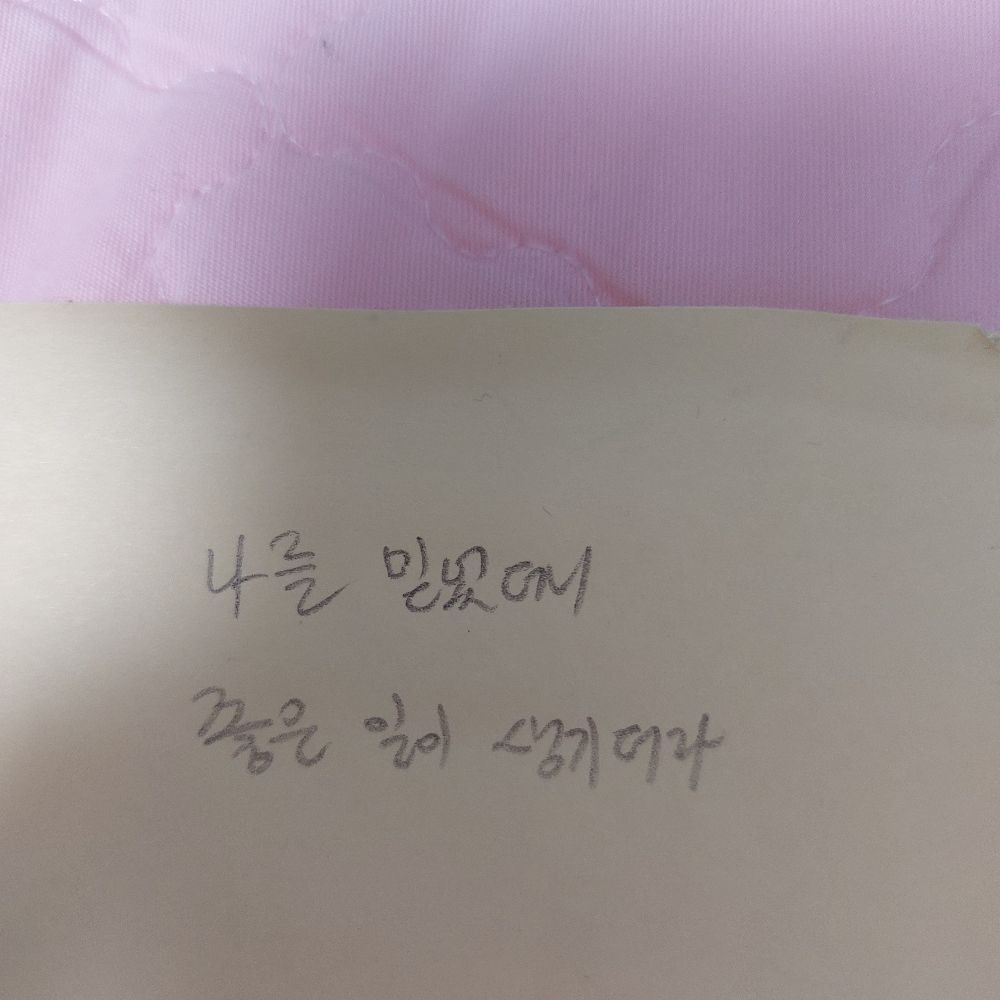 나를 믿었더니
좋은 일이 생기더라